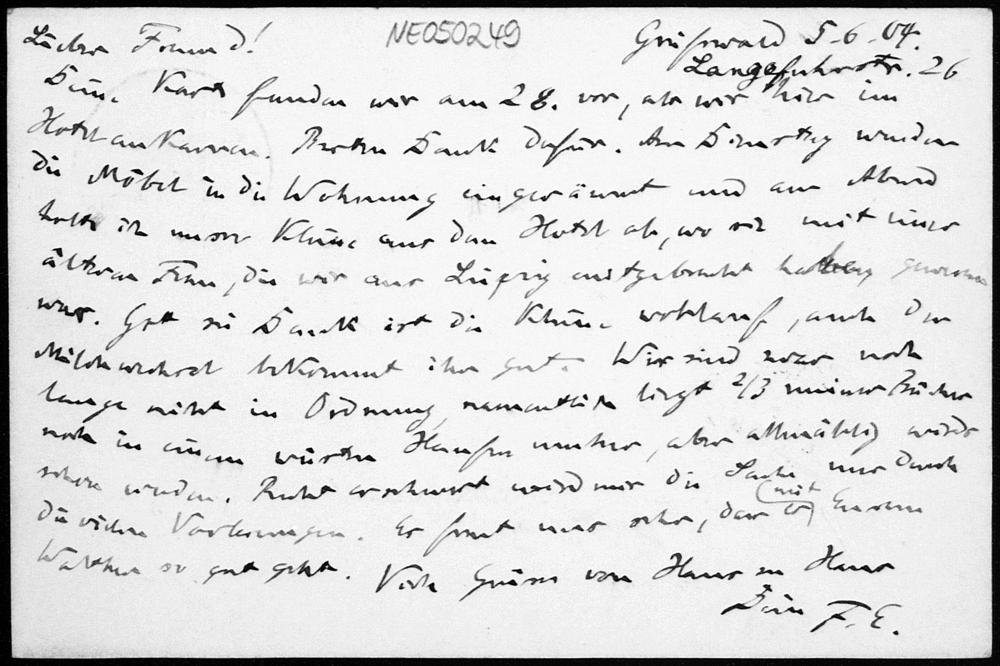 NE050249
Lieber Freund!
Greifswald 5.6.04.
Langefuhrstr. 26
Deine Karte fanden wir am 28. vor, als wir hier im
Hotel ankamen. Besten Dank dafür. Am Dienstag wurden
die Möbel in die Wohnung eingeräumt und am Abend
holte ich unser Kleine aus dem Hotel ab, wo sie mit einer
älteren Frau, die wir aus Leipzig mitgebracht hatten gewesen
war. Gott sei Dank ist die Kleine wohlauf, auch der
Milchwechsel bekommt ihr gut. Wir sind zwar noch
lange nicht in Ordnung, namentlich liegt 2/3 meiner Bücher
noch in einem wüsten Haufen umher, aber allmählig wirds
schon werden. Recht erschwert wird mir die Sache nur durch
die vielen Vorlesungen. Es freut uns sehr, dass es mit Eurem
Walther so gut geht. Viele Grüsse von Haus zu Haus
Dein F. E.